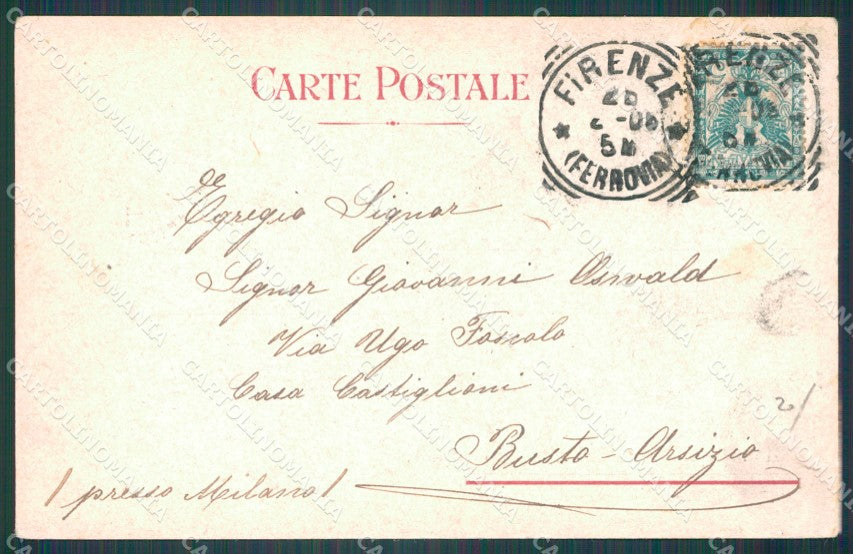 CARTE POSTALE
FIRENZE
26
2-06
5M
(FERROVIA)
FIRENZE
26
Egregio Signor
Signor Giovanni Oswald
Via Ugo Foscolo
Casa Castiglioni
Busto-Arsizio
/presso Milano/
2/
CARTOLINOMANIA